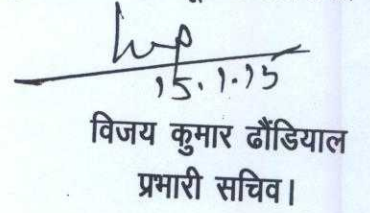 15.1.15
विजय कुमार ढौंडियाल
प्रभारी सचिव।